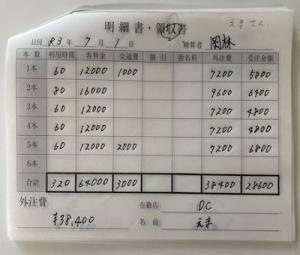 えま さん
明細書・領収書
日付 R3年 7月 1日 精算者 岡林
本数 利用時間 客料金 交通費 割引 指名料 外注費 受注金額
1本 60 12000 1000 7200 5800
2本 80 16000 9600 6400
3本 60 12000 7200 4800
4本 60 12000 7200 4800
5本 60 12000 2000 7200 6800
6本
合計 320 64000 3000 38400 28600
外注費 在籍店 DC
¥38,400 名前 えま